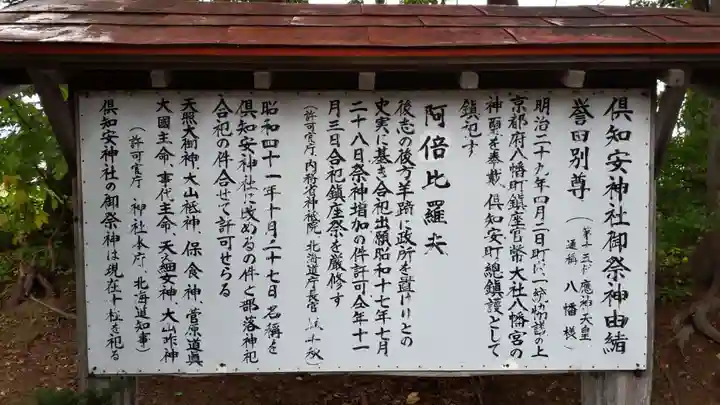 倶知安神社御祭神由緒
誉田別尊
(第十五代 應神天皇
通称 八幡様)
明治二十九年四月二日町に一統協議の上
京都府八幡町鎮座官幣大社八幡宮の
神璽を奉戴、倶知安町総鎮護として
鎮祀す
阿倍比羅夫
後志の後方羊蹄に政所を置けりとの
史実に基き合祀出願昭和十七年七月
二十八日祭神増加の件許可仝年十一
月三日合祀鎮座祭を厳修す
(許可官庁、内務省神祇院、北海道庁長官
昭和四十一年十月二十七日名称を
倶知安神社に改めるの件と部落神祀
合祀の件合せて許可せらる
天照大御神、大山祇神、保食神、菅原道眞
大國主命、事代主命、天之細女神、大山咋神
(許可官庁、神社本庁、北海道知事)
倶知安神社の御祭神は現在十柱を祀る